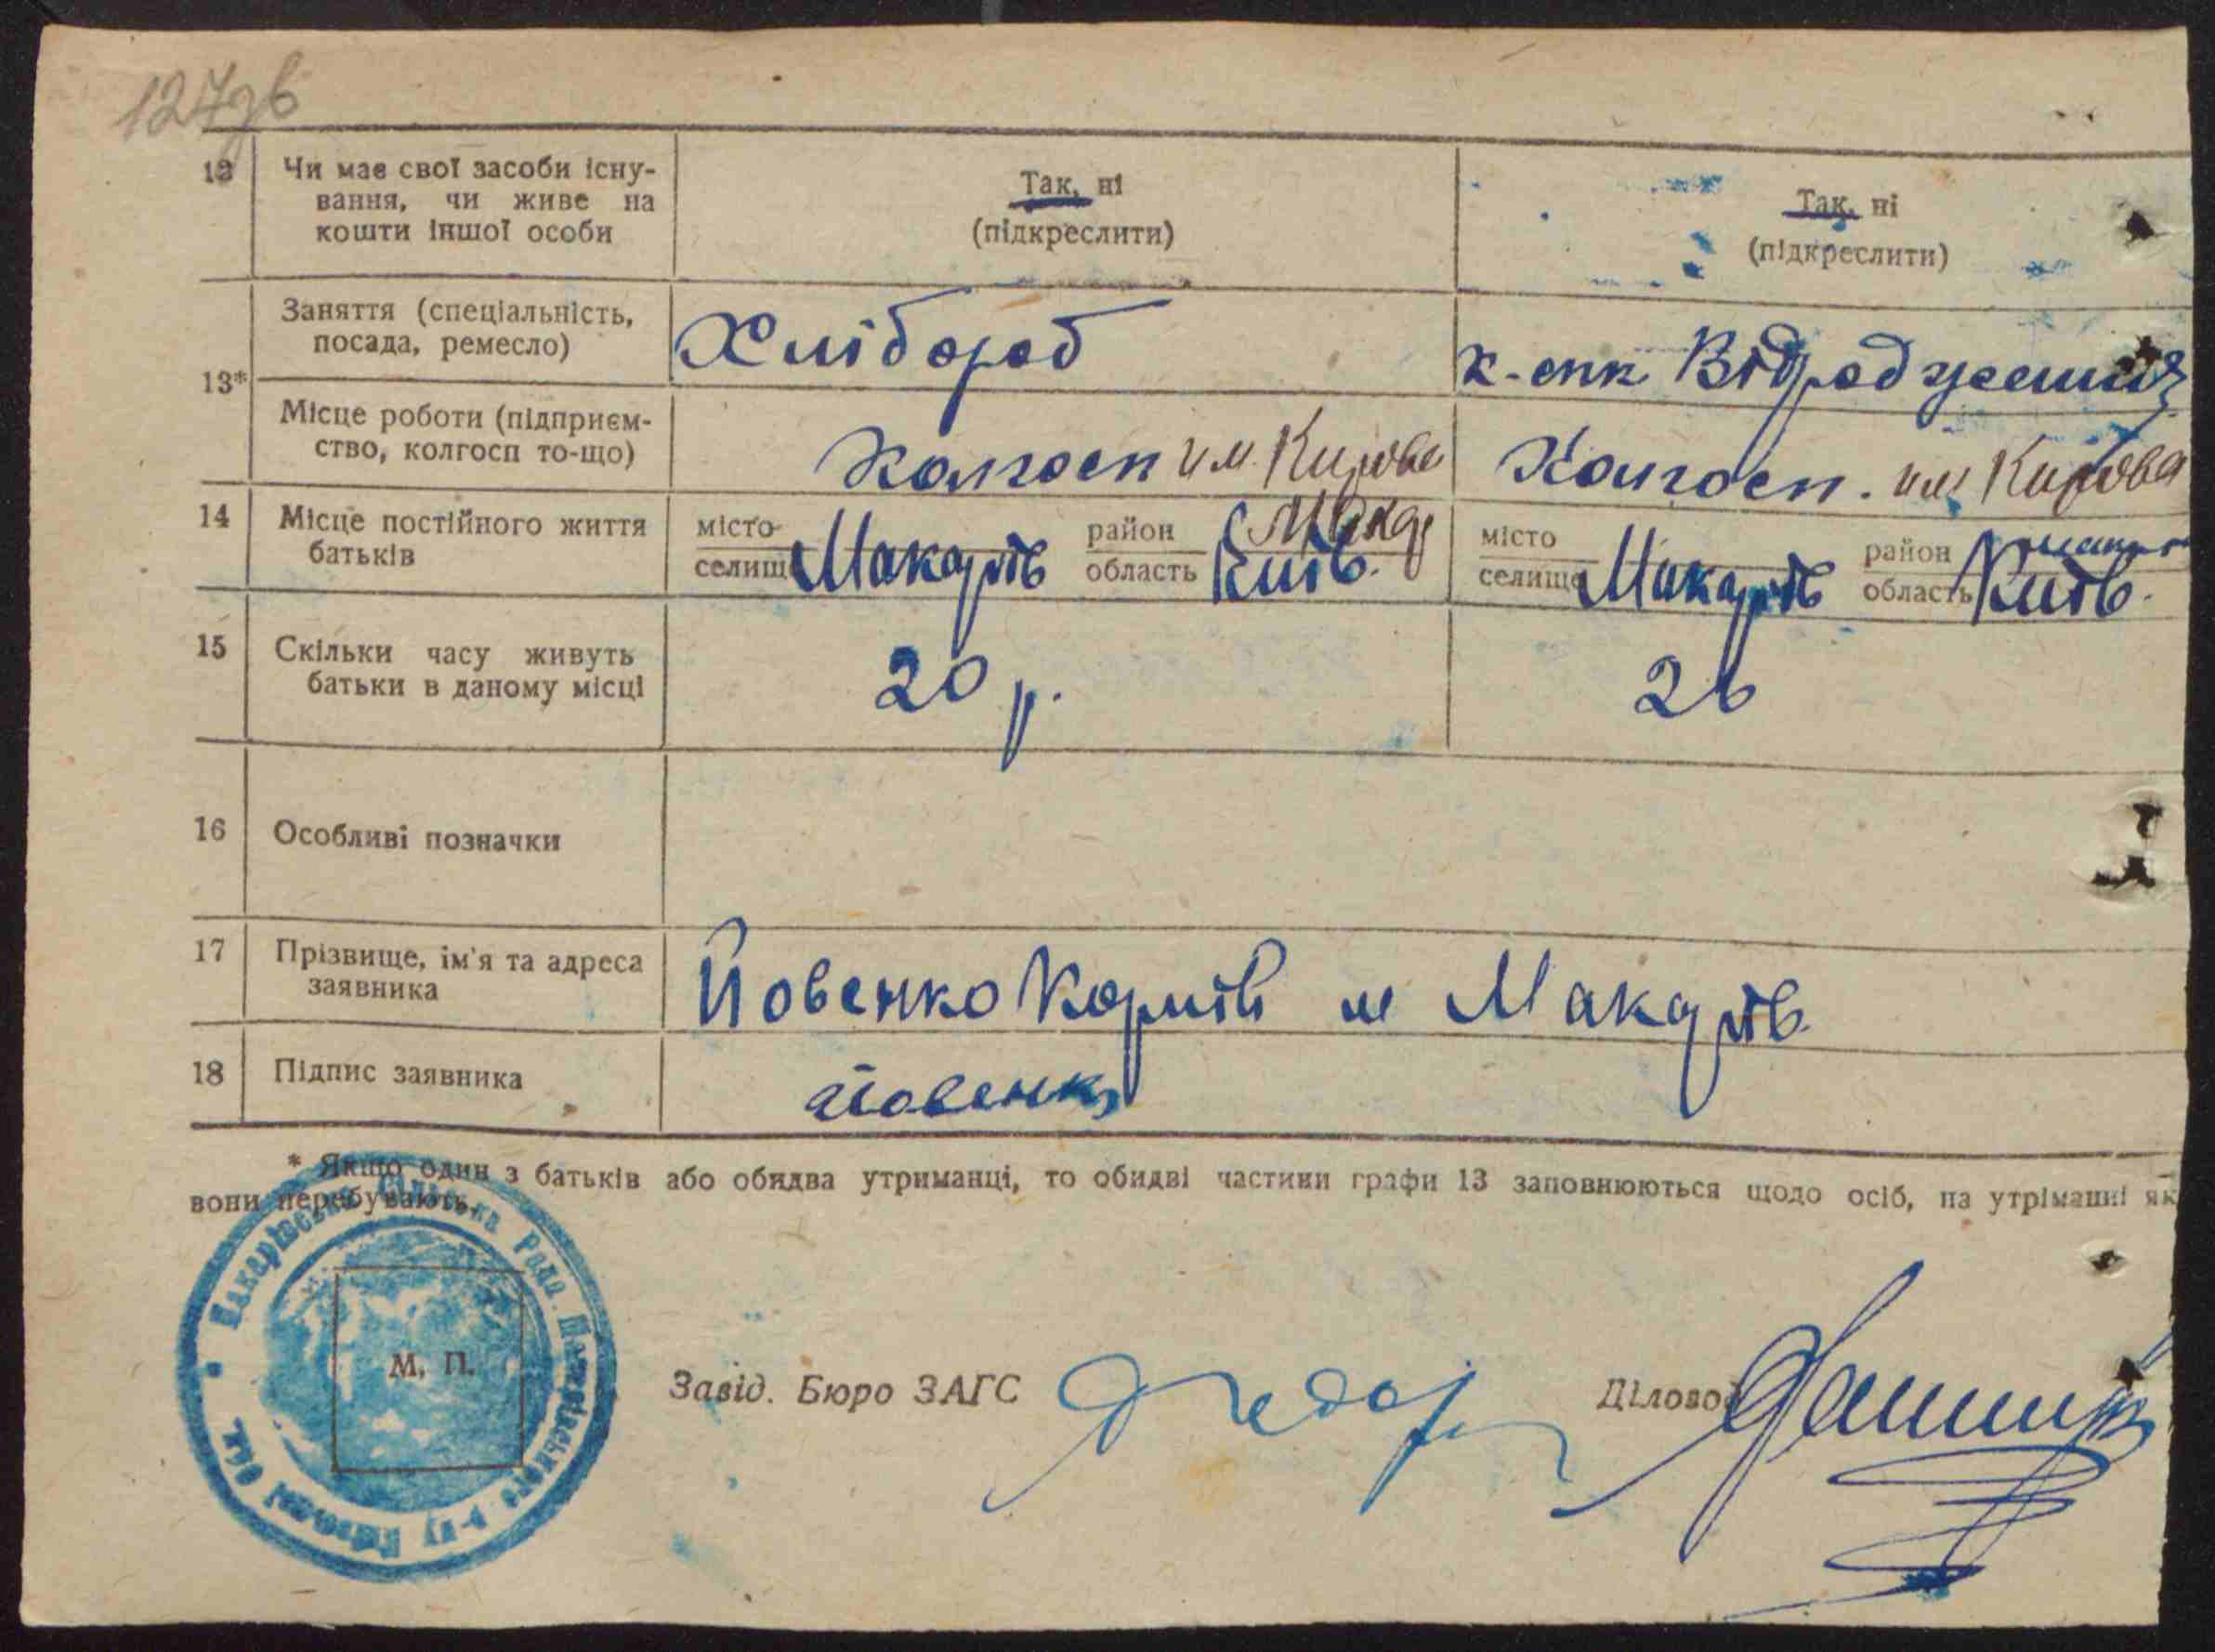 127зв
12 Чи має свої засоби існу-
вання, чи живе на
кошти іншої особи
Так, ні
(підкреслити)
Так, ні
(підкреслити)
13*
Заняття (спеціальність,
посада, ремесло)
Хлібороб
к-спк Відродження
Місце роботи (підприєм-
ство, колгосп то-що)
Колгосп им. Кирова
Колгосп. им Кирова
14 Місце постійного життя
батьків
місто
селище Макарів
район Макар
область Київ.
місто
селище Макарів
район
область Київ.
15 Скільки часу живуть
батьки в даному місці
20 р.
26
16 Особливі позначки
17 Прізвище, ім'я та адреса
заявника
Йовенко Корній м Макарів
18 Підпис заявника
Йовенко
* Якщо один з батьків або обидва утриманці, то обидві частини графи 13 заповнюються щодо осіб, на утріманні як
вони перебувають.
Макарівська Сільська Рада. Макарівського р-ну Київської обл.
М. П.
Завід. Бюро ЗАГС
Діловод